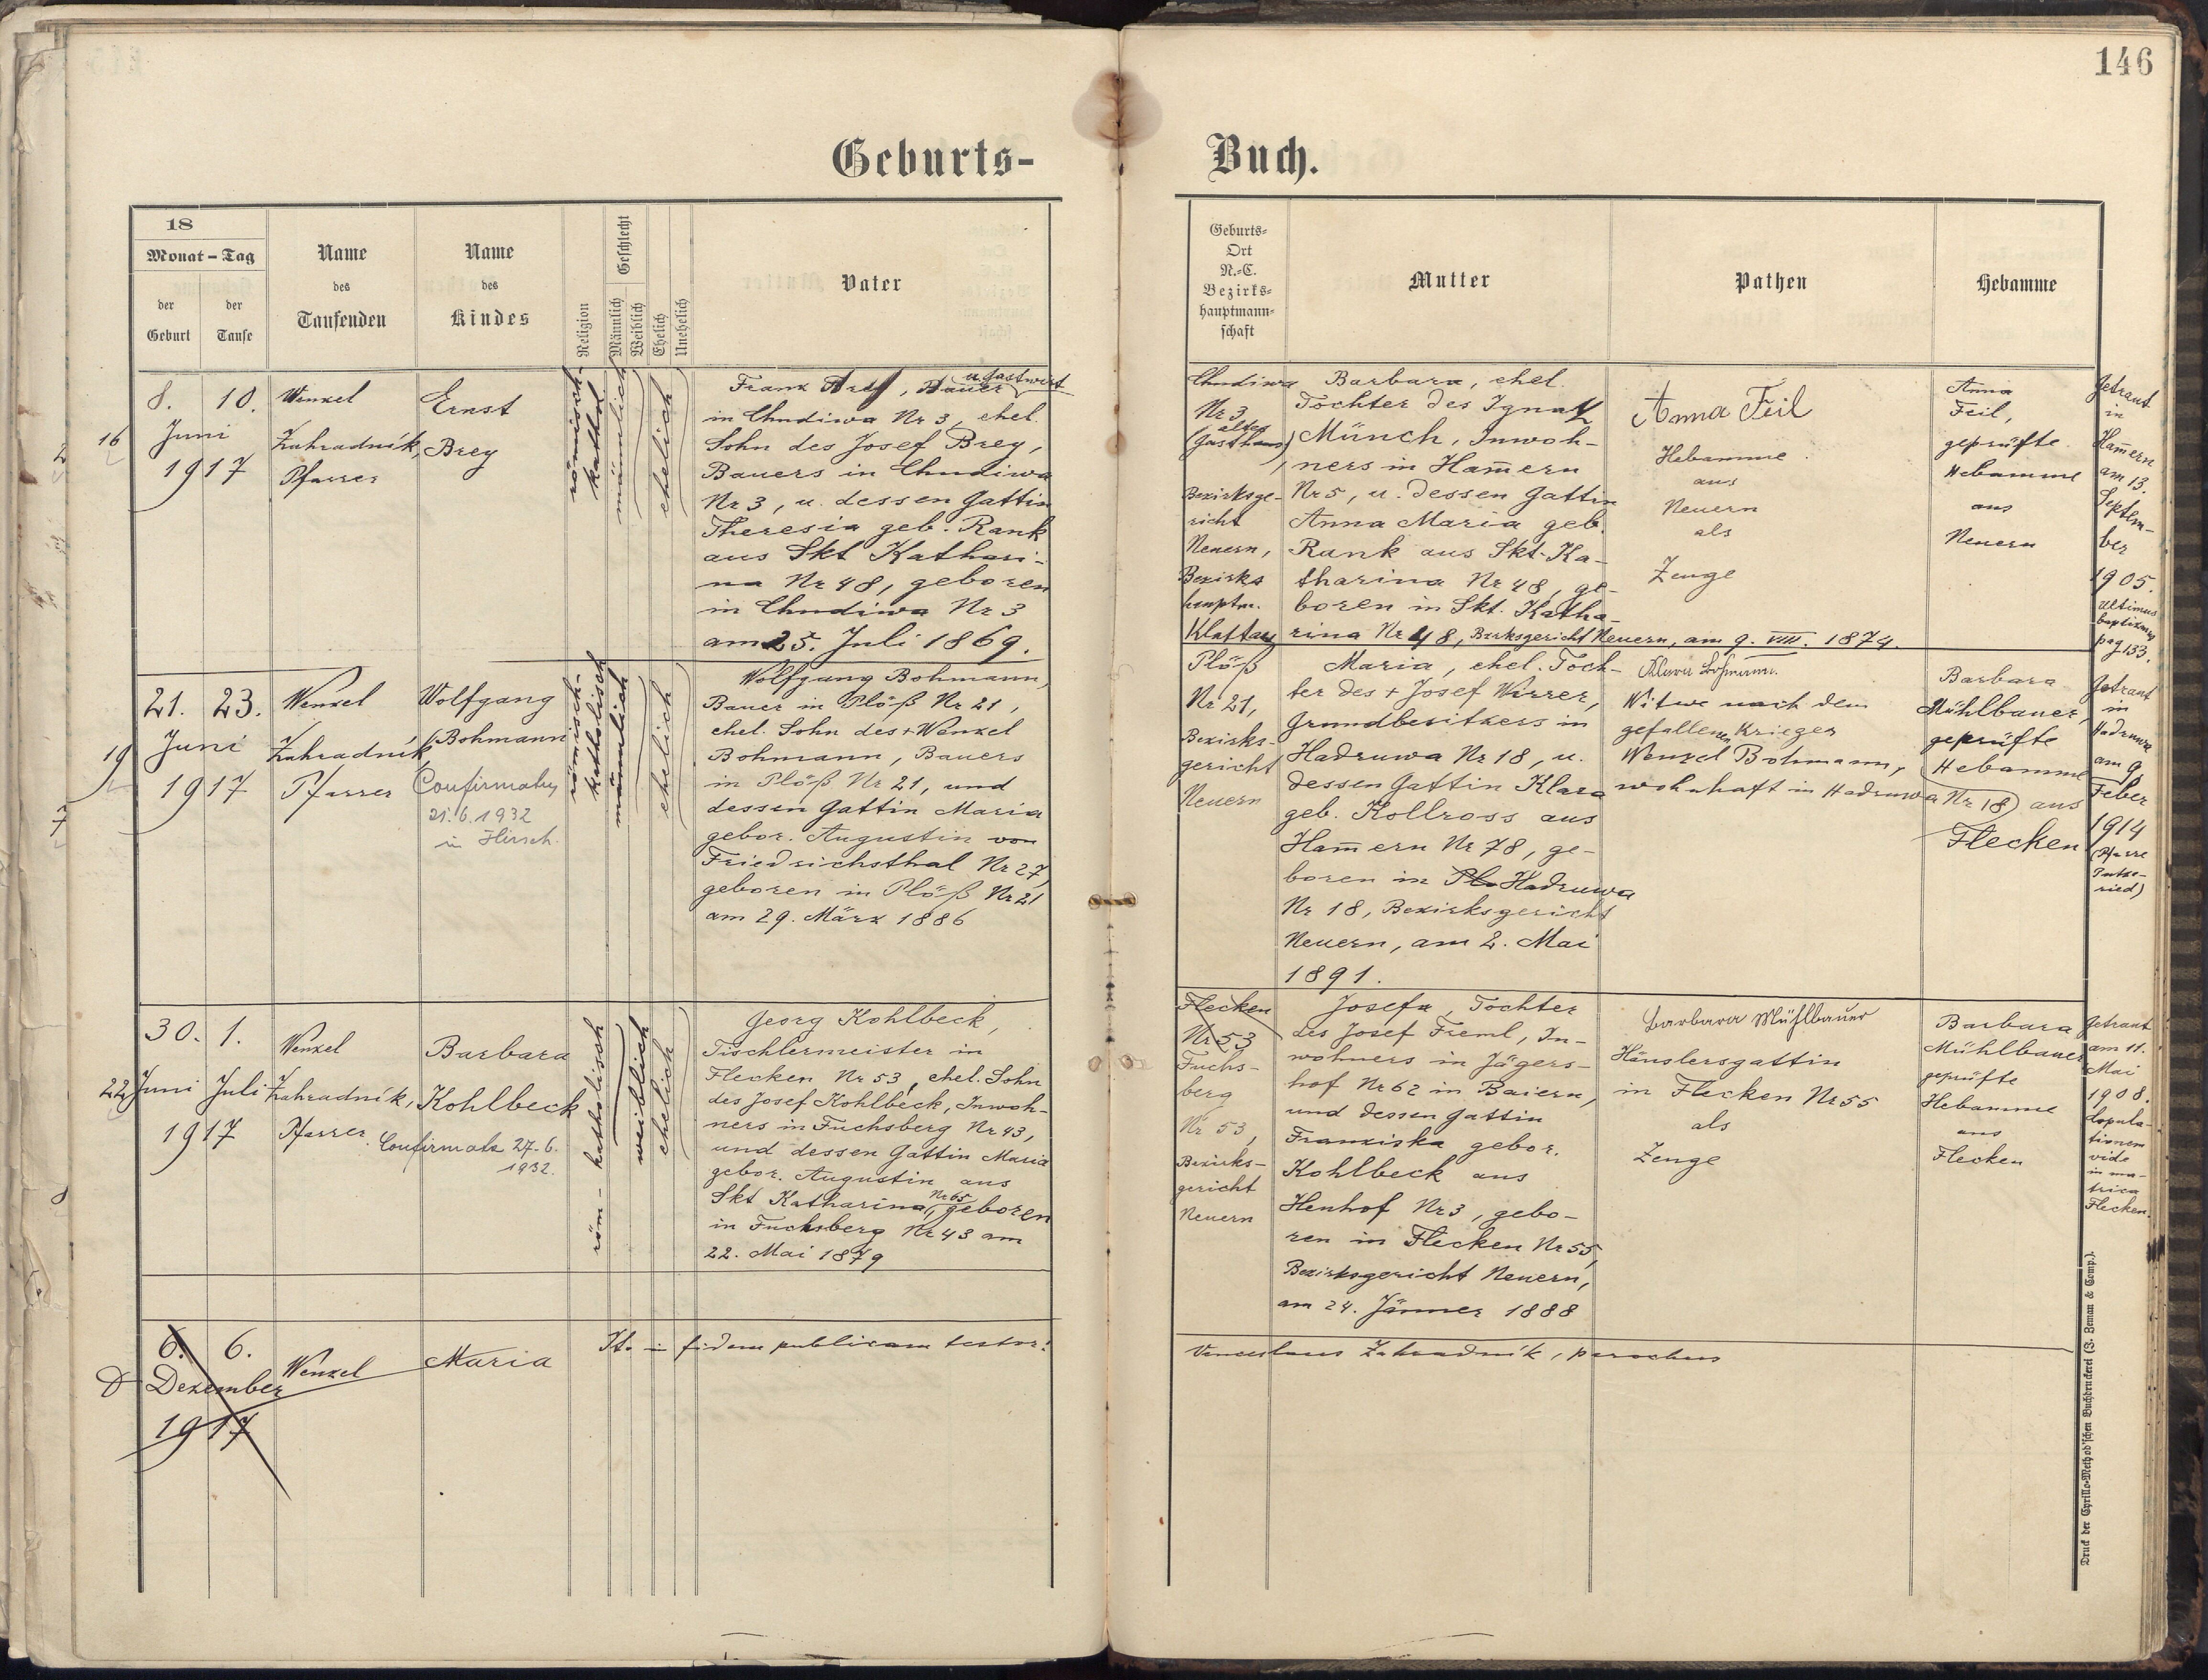 146
Geburts-
Buch.
18
Monat - Tag
der
Geburt
der
Taufe
Name
des
Taufenden
Name
des
Kindes
Religion
Geschlecht
Männlich
Weiblich
Ehelich
Unehelich
Vater
Geburts-
Ort
N.-C.
Bezirks-
hauptmann-
schaft
Mutter
Pathen
Hebamme
16
8. 10.
Juni
1917
Wenzel
Zahradník,
Pfarrer
Ernst
Brey
römisch-
kathol.
männlich
ehelich
Franz Brey, Bauer u. Gastwirt
in Chudiwa Nr 3, ehel.
Sohn des Josef Brey,
Bauers in Chudiwa
Nr 3, u. dessen Gattin
Theresia geb. Rank
aus Skt Kathari-
na Nr 48, geboren
in Chudiwa Nr 3
am 25. Juli 1869.
Chudiwa
Nr 3
altes
(Gasthaus),
Bezirksge-
richt
Neuern,
Bezirks
hauptm.
Klattau
Barbara, ehel.
Tochter des Ignatz
Münch, Inwoh-
ners in Ham̄ern
Nr 5, u. dessen Gattin
Anna Maria geb.
Rank aus Skt. Ka-
tharina Nr 48, ge-
boren in Skt. Katha-
rina Nr 48, Bezirksgericht Neuern, am 9. VIII. 1874.
Anna Feil
Hebamme
aus
Neuern
als
Zeuge
Anna
Feil,
geprüfte
Hebamme
aus
Neuern
Getraut
in
Ham̄ern
am 13.
Septem-
ber
1905.
Ultimus
baptizatus
pag 133.
19
21. 23.
Juni
1917
Wenzel
Zahradník
Pfarrer
Wolfgang
Bohmann
Confirmatus
21.6.1932
in Hirsch.
römisch-
katholisch
männlich
ehelich
Wolfgang Bohmann,
Bauer in Plöß Nr 21,
ehel. Sohn des + Wenzel
Bohmann, Bauers
in Plöß Nr 21, und
dessen Gattin Maria
gebor. Augustin von
Friedrichsthal Nr 27,
geboren in Plöß Nr 21
am 29. März 1886
Plöß
Nr 21,
Bezirks-
gericht
Neuern
Maria, ehel. Toch-
ter des + Josef Wirrer,
Grundbesitzers in
Hadruwa Nr 18, u.
dessen Gattin Klara
geb. Kollross aus
Ham̄ern Nr 78, ge-
boren in Plö Hadruwa
Nr 18, Bezirksgericht
Neuern, am 2. Mai
1891.
Klara Bohmann
Witwe nach dem
gefallenen Krieger
Wenzel Bohmann,
wohnhaft in Hadruwa Nr 18
Barbara
Mühlbauer,
geprüfte
Hebamme
aus
Flecken
Getraut
in
Hadruwa
am 9.
Feber
1914
(Pfarre
Putze-
ried)
22
30. 1.
Juni Juli
1917
Wenzel
Zahradník,
Pfarrer
Barbara
Kohlbeck
Confirmata 27.6.
1932.
röm-katholisch
weiblich
ehelich
Georg Kohlbeck,
Tischlermeister in
Flecken Nr 53, ehel. Sohn
des Josef Kohlbeck, Inwoh-
ners in Fuchsberg Nr 43,
und dessen Gattin Maria
gebor. Augustin aus
Skt Katharina, Nr 65 geboren
in Fuchsberg Nr 43 am
22. Mai 1879
Flecken
Nr 53
Fuchs-
berg
Nr 53,
Bezirks-
gericht
Neuern
Josefa, Tochter
des Josef Freml, In-
wohners in Jägers-
hof Nr 62 in Baiern,
und dessen Gattin
Franziska gebor.
Kohlbeck aus
Henhof Nr 3, gebo-
ren in Flecken Nr 55,
Bezirksgericht Neuern,
am 24. Jänner 1888
Barbara Mühlbauer
Häuslersgattin
in Flecken Nr 55
als
Zeuge
Barbara
Mühlbauer
geprüfte
Hebamme
aus
Flecken
Getraut
am 11.
Mai
1908.
Copula-
tionem
vide
in ma-
trica
Flecken.
6. 6.
Dezember
1917
Wenzel
Maria
in fidem publicam testor:
Venceslaus Zahradník, parochus
Druck der Cyrillo-Method'schen Buchdruckerei (J. Zeman & Comp.).